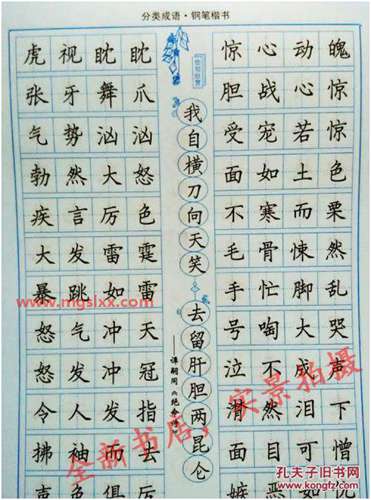 分类成语·钢笔楷书
虎视眈眈
张牙舞爪
气势汹汹
勃然大怒
疾言厉色
大发雷霆
暴跳如雷
怒气冲天
怒发冲冠
令人发指
拂袖而去
声色俱厉
我自横刀向天笑
去留肝胆两昆仑
——谭嗣同《绝命诗》
惊心动魄
胆战心惊
受宠若惊
面如土色
不寒而栗
毛骨悚然
手忙脚乱
号啕大哭
泣不成声
潸然泪下
面目可憎
www.mgslxx.com
全新书店，实景拍摄
孔夫子旧书网
kongfz.com